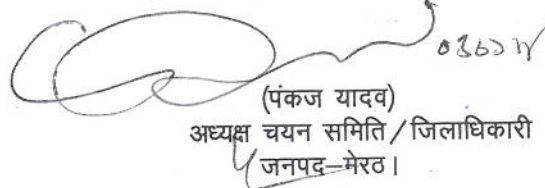 (पंकज यादव)
अध्यक्ष चयन समिति/जिलाधिकारी
जनपद–मेरठ।